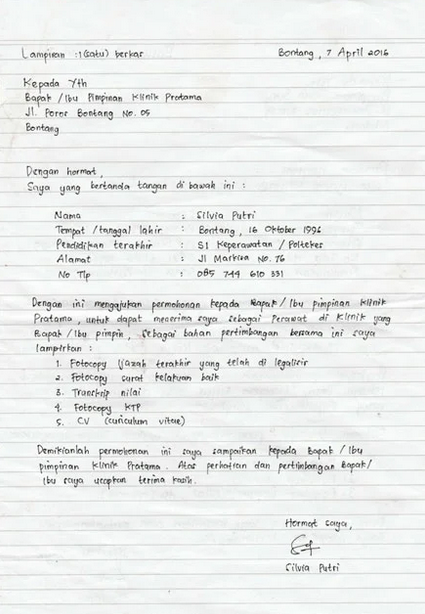 Lampiran : 1 (satu) berkas Bontang, 7 April 2016
Kepada Yth
Bapak / Ibu Pimpinan Klinik Pratama
Jl. Poros Bontang No. 05
Bontang
Dengan hormat,
Saya yang bertanda tangan di bawah ini :
Nama : Silvia Putri
Tempat / tanggal lahir : Bontang, 16 Oktober 1996
Pendidikan terakhir : S1 Keperawatan / Poltekes
Alamat : Jl Markisa No. 76
No Tlp : 085 744 610 331
Dengan ini mengajukan permohonan kepada Bapak / Ibu pimpinan klinik
Pratama, untuk dapat menerima saya sebagai perawat di klinik yang
Bapak / Ibu pimpin, sebagai bahan pertimbangan bersama ini saya
lampirkan :
1. Fotocopy ijazah terakhir yang telah di legalisir
2. Fotocopy surat kelakuan baik
3. Transkrip nilai
4. Fotocopy KTP
5. CV (curiculum vitae)
Demikianlah permohonan ini saya sampaikan kepada Bapak / Ibu
pimpinan Klinik Pratama. Atas perhatian dan pertimbangan Bapak/
Ibu saya ucapkan terima kasih.
Hormat saya,
Silvia Putri